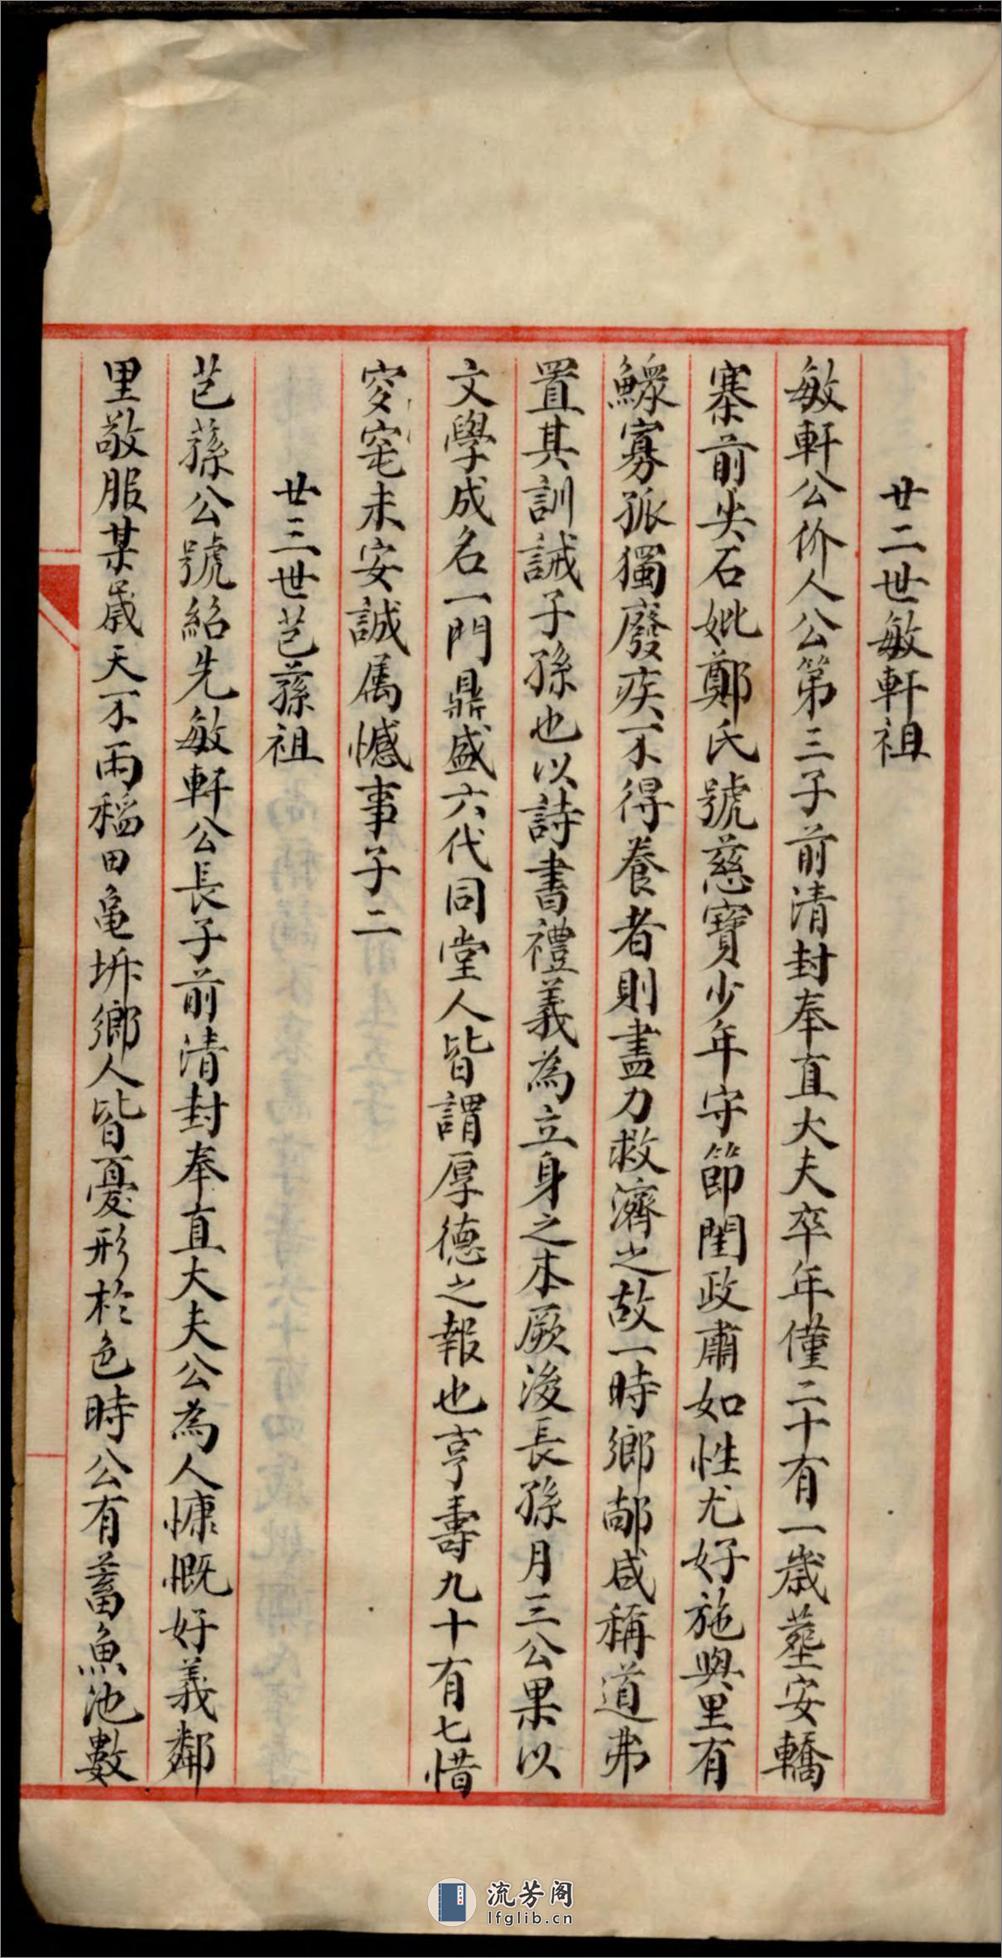 廿二世敏軒祖
敏軒公价人公第三子前清封奉直大夫卒年僅二十有一歲塟安轎
寨前尖石妣鄭氏號慈寶少年守節閨政肅如性尤好施與里有
鰥寡孤獨廢疾不得養者則盡力救濟之故一時鄉鄰咸稱道弗
置其訓誡子孫也以詩書禮義為立身之本厥後長孫月三公果以
文學成名一門鼎盛六代同堂人皆謂厚德之報也享壽九十有七惜
窀未安誠屬憾事子二
廿三世芑蓀祖
芑蓀公號紹先敏軒公長子前清封奉直大夫公為人慷慨好義鄰
里敬服某歲天不雨稲田亀坼鄉人皆憂形於色時公有蓄魚池數
流芳阁
lfglib.cn